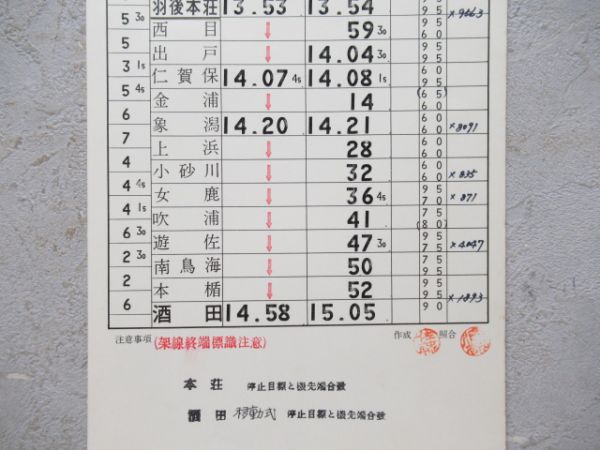 羽後本荘 13.53 13.54 95
5 30 95 ×9663
西目 ↓ 59 30 95
5 60
出戸 ↓ 14.04 30 95
3 15 60
仁賀保 14.07 45 14.08 15 60
5 45 95
金浦 ↓ 14 (65)
6 60
象潟 14.20 14.21 60 ×8091
7 60
上浜 ↓ 28 60
6 60
小砂川 ↓ 32 60 ×835
4 95
女鹿 ↓ 36 45 70 ×871
4 15 75
吹浦 ↓ 41 (80)
6 30 95
遊佐 ↓ 47 30 75 ×4047
2 30 95
南鳥海 ↓ 50 95
2 95
本楯 ↓ 52 95 ×1893
6 90
酒田 14.58 15.05
注意事項 (架線終端標識注意) 作成 照合
本荘 停止目標と機先端合致
酒田 移動式 停止目標と機先端合致